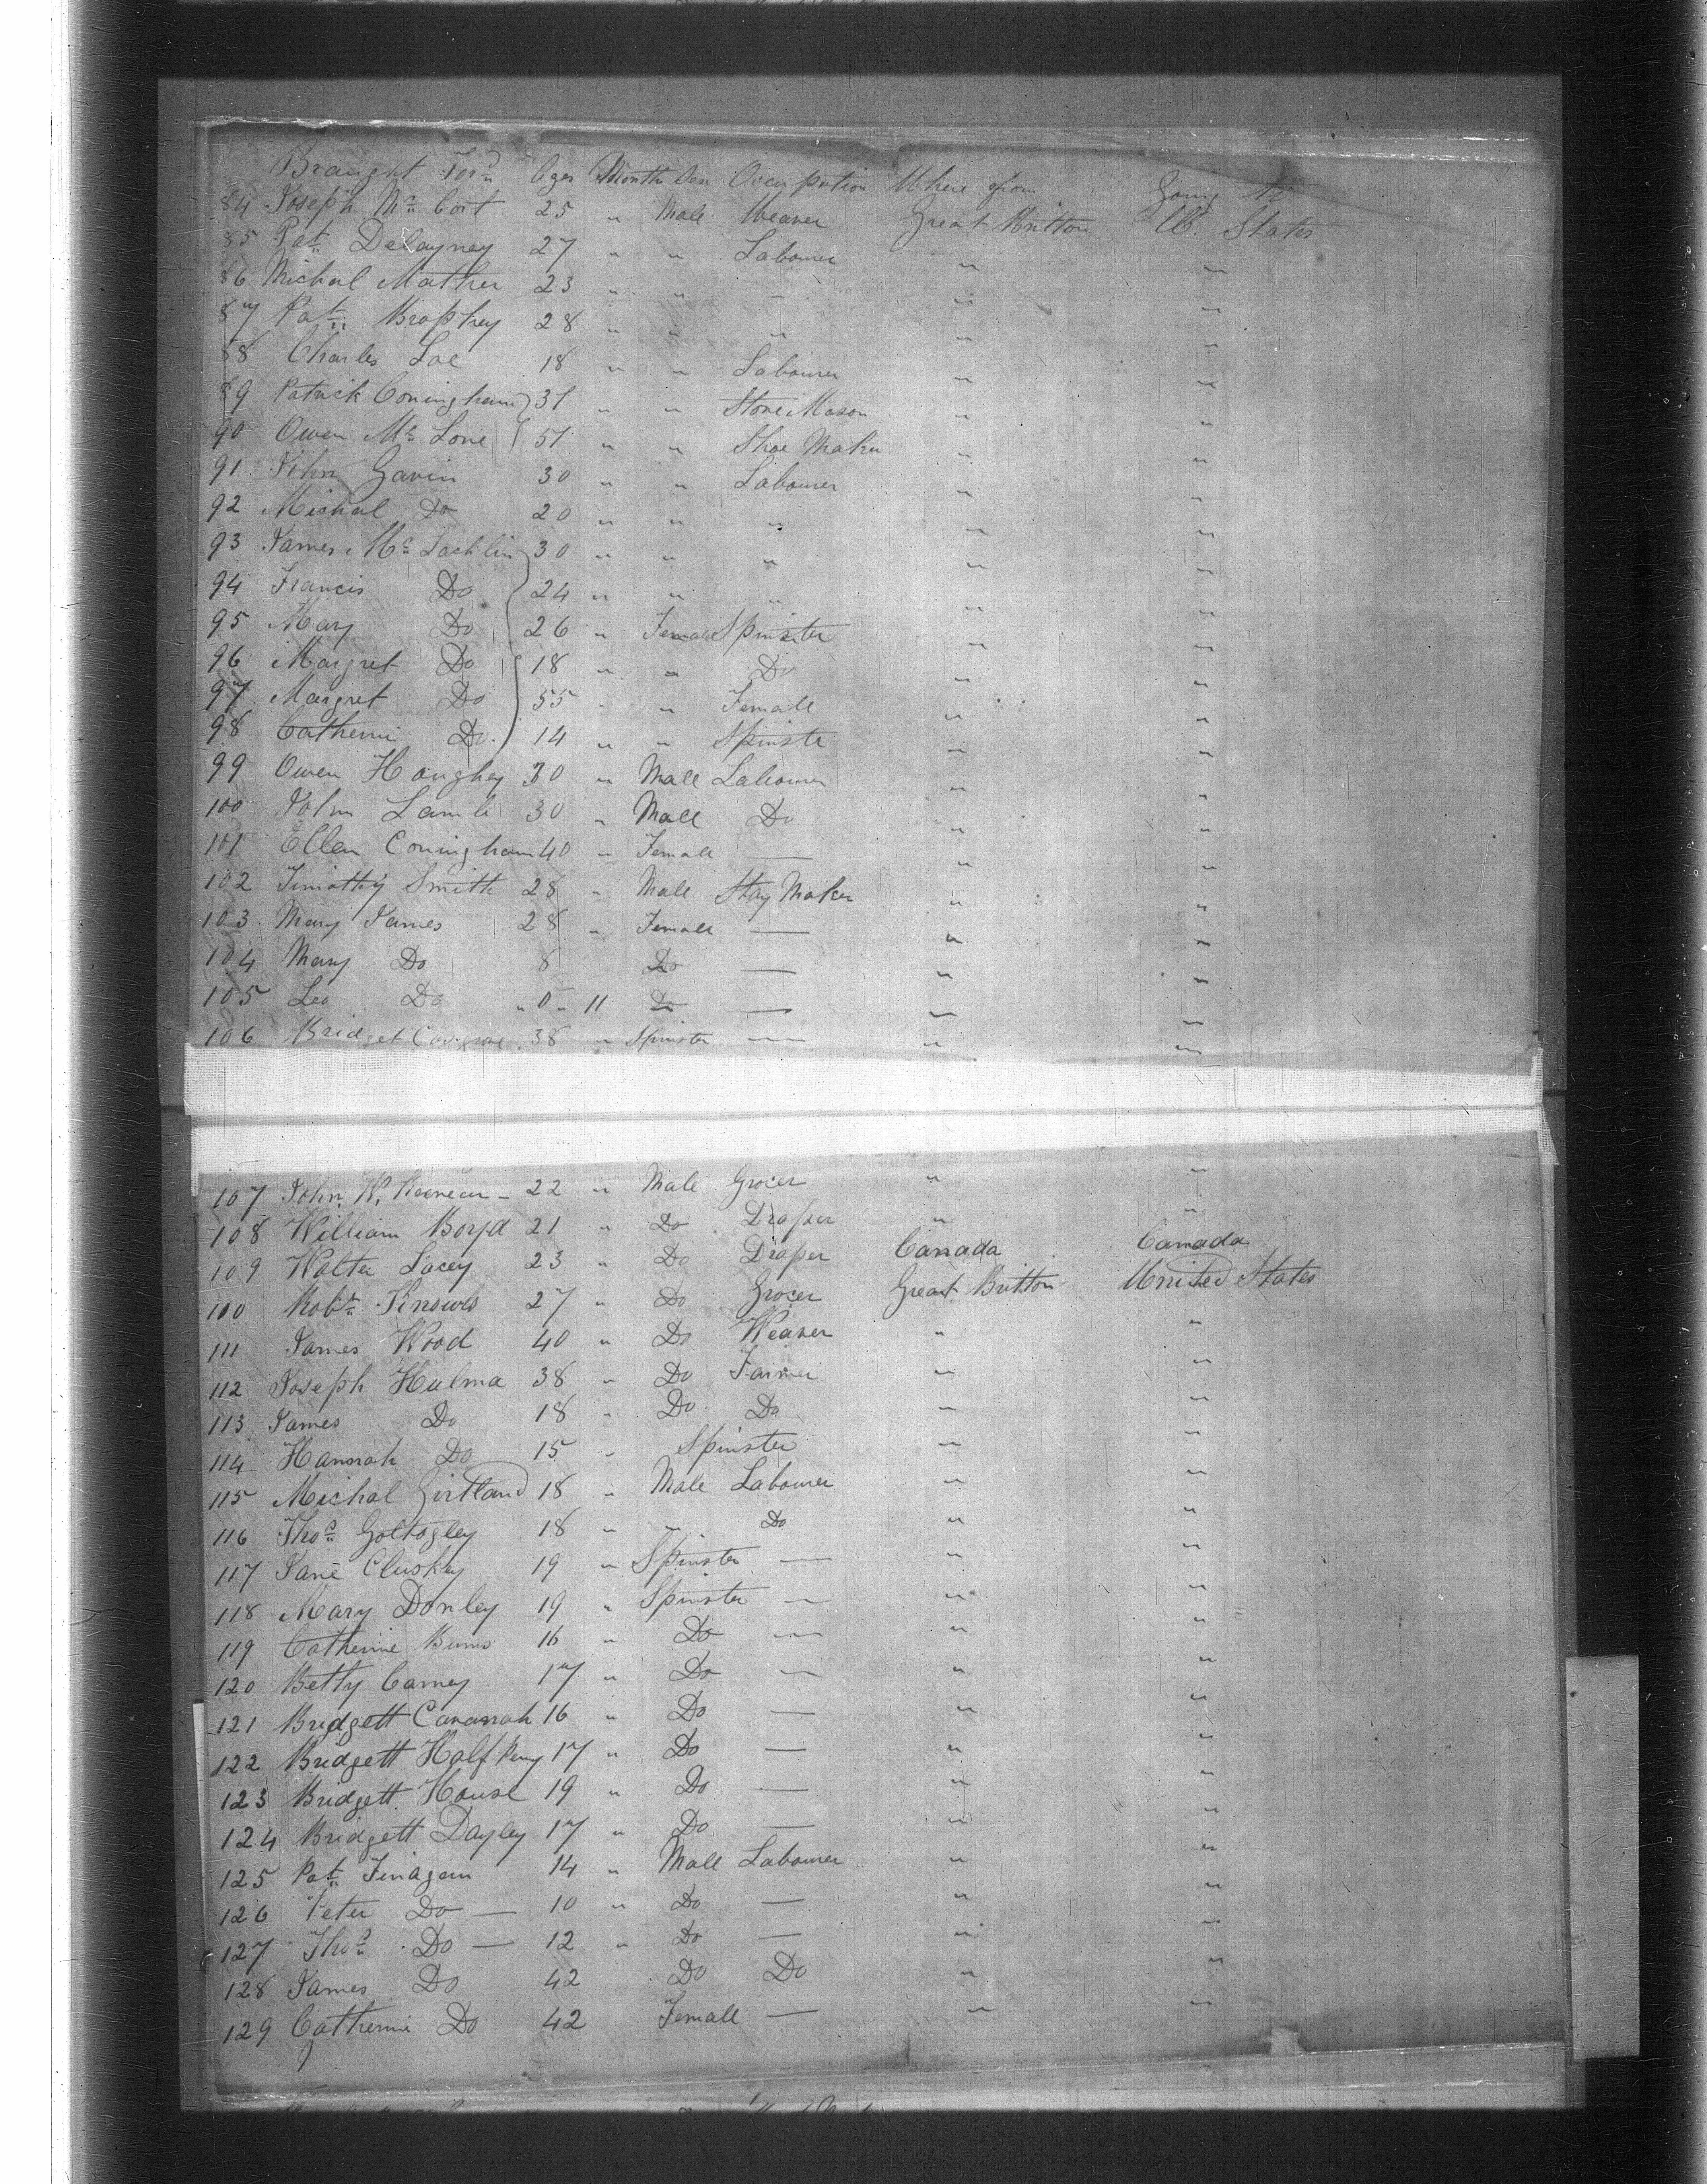 Braught Ford Ages Month Sex Occupation Where from Going to
84 Joseph Mc Cort 25 " Male Weaver Great Britton U. States
85 Pat Delayney 27 " " Labourer " "
86 Michal Mather 23 " " " " "
87 Pat Brophey 28 " " " " "
88 Charles Lac 18 " " Labourer " "
89 Patrick Coningham 31 " " Stone Mason " "
90 Owen Mc Lone 51 " " Shoe Maker " "
91 John Gavin 30 " " Labourer " "
92 Michal Do 20 " " " " "
93 James Mc Lachlin 30 " " " " "
94 Francis Do 24 " " " " "
95 Mary Do 26 " Female Spinster " "
96 Margret Do 18 " " Do " "
97 Margret Do 55 " " Female " "
98 Catherine Do 14 " " Spinste " "
99 Owen Haughey 30 " Male Labourer " "
100 John Lamb 30 " Male Do " "
101 Ellen Coningham 40 " Female — " "
102 Timothy Smith 28 " Male Stay Maker " "
103 Mary James 28 " Female — " "
104 Mary Do 8 Do — " "
105 Leo Do " 0 " 11 Do — " "
106 Bridget Cosgrove 38 " Spinster — " "
107 John K. 22 " Male Grocer " "
108 William Boyd 21 " Do Draper " "
109 Walter Lacey 23 " Do Draper Canada Canada
100 Robt Knowls 27 " Do Grocer Great Britton United States
111 James Wood 40 " Do Weaver " "
112 Joseph Hulma 38 " Do Farmer " "
113 James Do 18 " Do Do " "
114 Hannah Do 15 " Spinster " "
115 Michal Girtland 18 " Male Labourer " "
116 Thos Goltogley 18 " " Do " "
117 Jane Cluskey 19 " Spinster — " "
118 Mary Donley 19 " Spinster — " "
119 Catherine Burns 16 " Do — " "
120 Betty Carney 17 " Do — " "
121 Bridgett Cavanah 16 " Do — " "
122 Bridgett Halfpeny 17 " Do — " "
123 Bridgett House 19 " Do — " "
124 Bridgett Dayley 17 " Do — " "
125 Pat Finagan 14 " Male Labourer " "
126 Peter Do — 10 " Do — " "
127 Thos Do — 12 " Do — " "
128 James Do 42 Do Do " "
129 Catherine Do 42 Female — " "